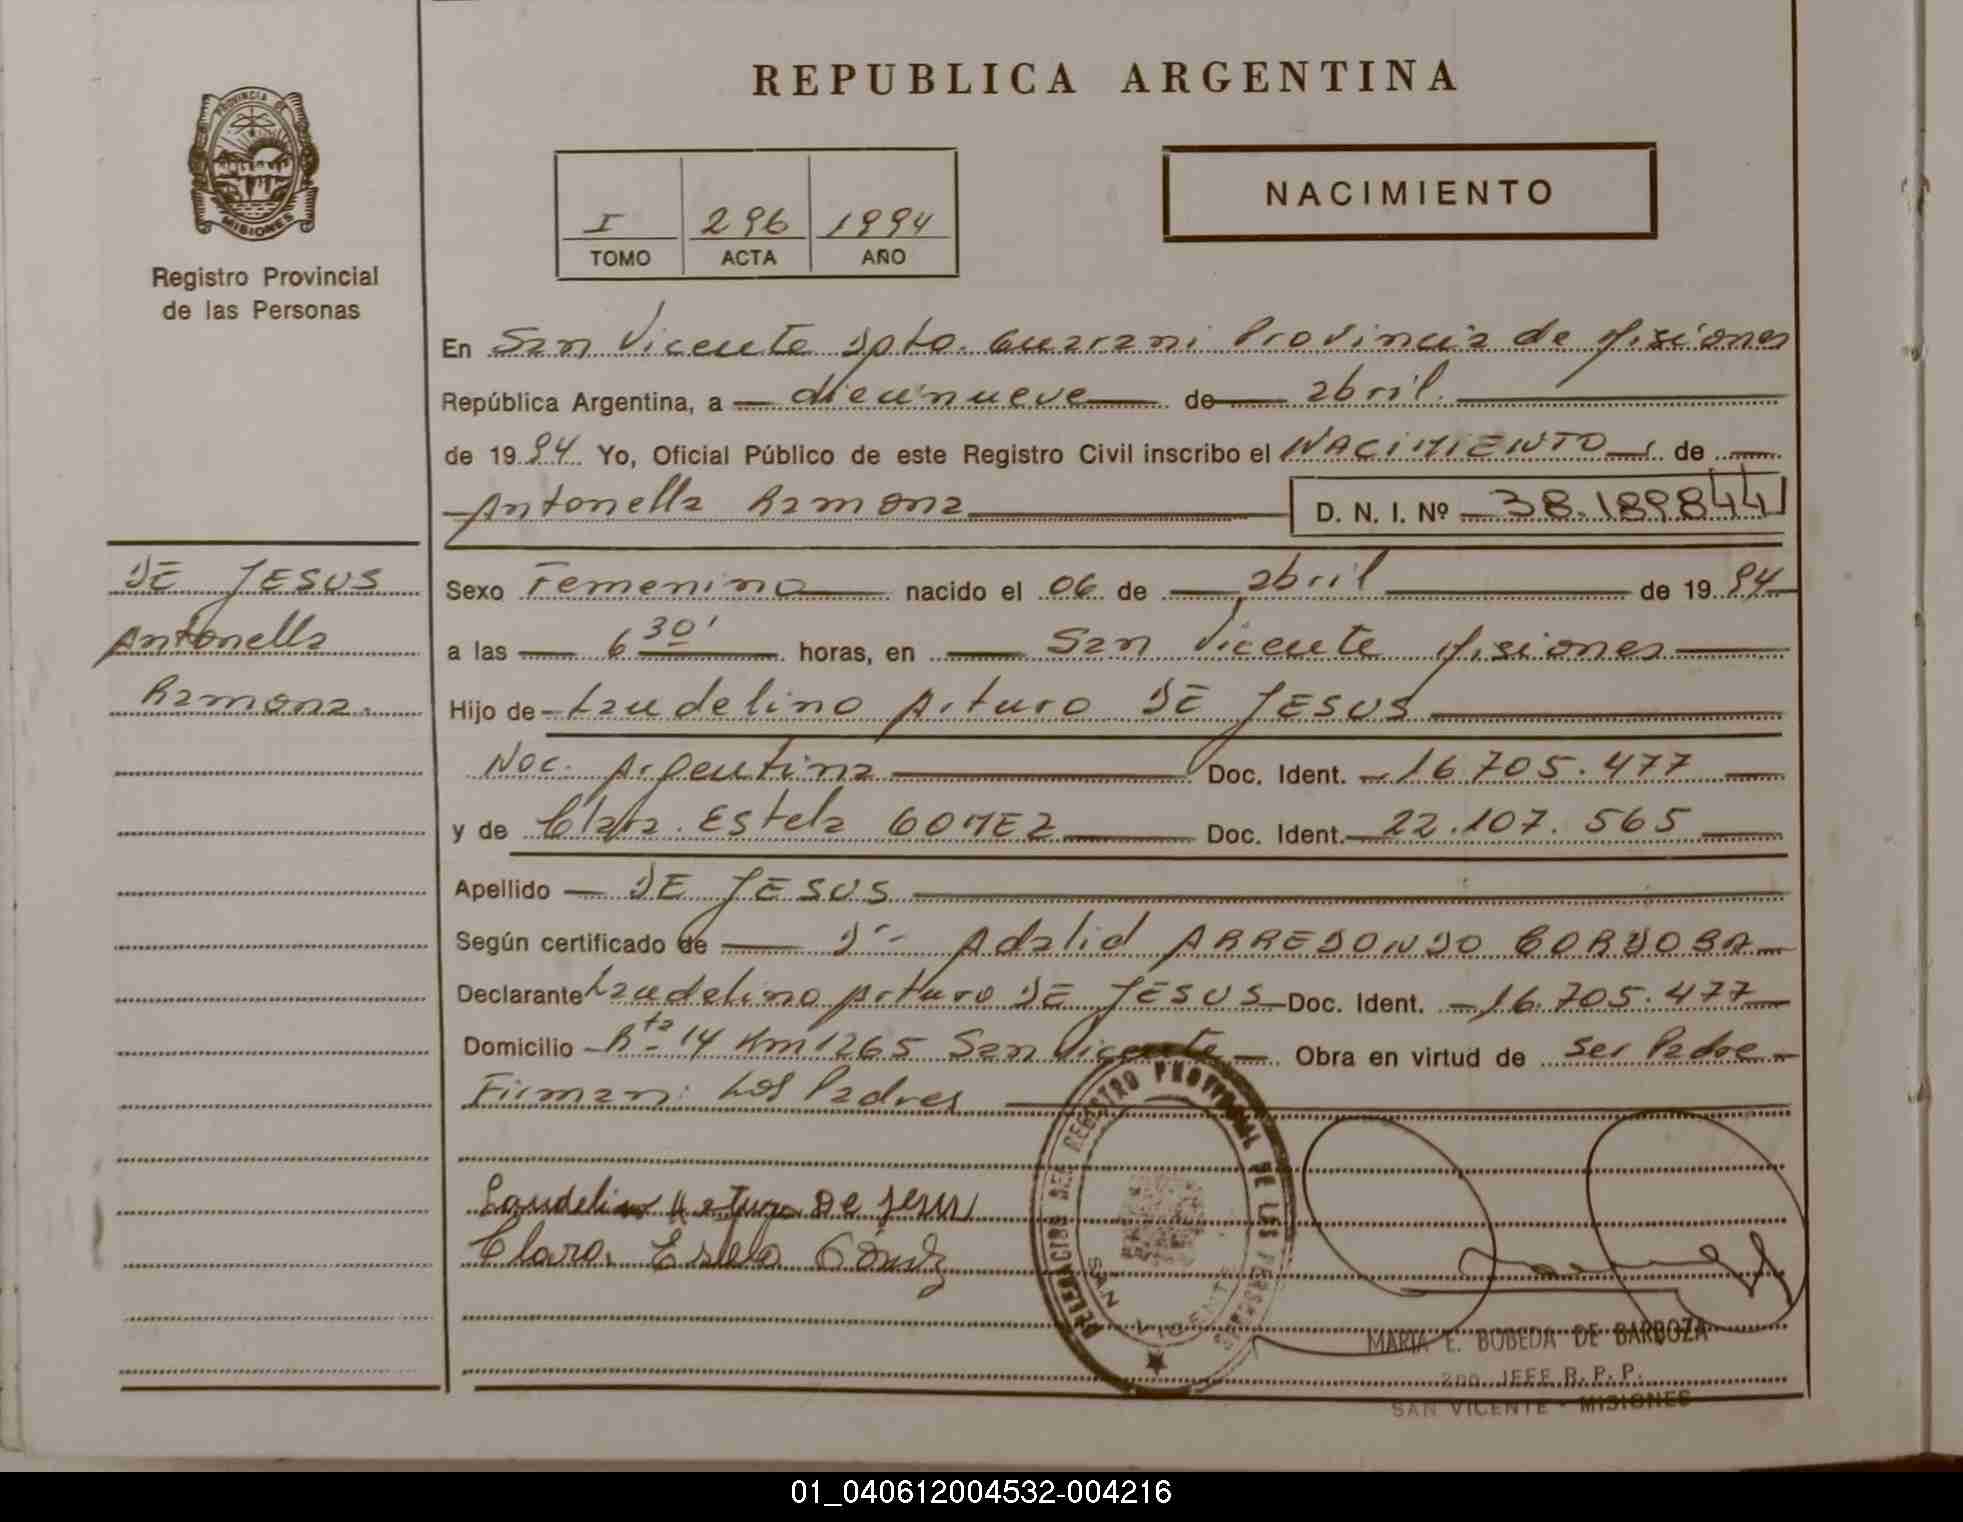 REPUBLICA ARGENTINA
PROVINCIA DE
MISIONES
Registro Provincial
de las Personas
I 296 1994
TOMO ACTA AÑO
NACIMIENTO
En San Vicente Dpto. Guarani Provincia de Misiones
República Argentina, a diecinueve de abril.
de 1994 Yo, Oficial Público de este Registro Civil inscribo el NACIMIENTO de
Antonella Ramona D. N. I. Nº 38.189844
DE JESUS
Antonella
Ramona.
Sexo Femenino nacido el 06 de abril de 1994
a las 6 30' horas, en San Vicente Misiones
Hijo de Laudelino Arturo DE JESUS
Nac. Argentina Doc. Ident. 16.705.477
y de Clara Estela GOMEZ Doc. Ident. 22.107.565
Apellido DE JESUS
Según certificado de Dr. Adalid ARREDONDO CORDOBA
Declarante Laudelino Arturo DE JESUS Doc. Ident. 16.705.477
Domicilio Rta 14 Km 1265 San Vicente Obra en virtud de ser Padre
Firman: Los Padres
Laudelino Arturo De Jesus
Clara Estela Gómez
DELEGACION DEL REGISTRO PROVINCIAL DE LAS PERSONAS
SAN VICENTE
MARIA E. BOBEDA DE BARBOZA
2DO. JEFE R. P. P.
SAN VICENTE - MISIONES
01_040612004532-004216